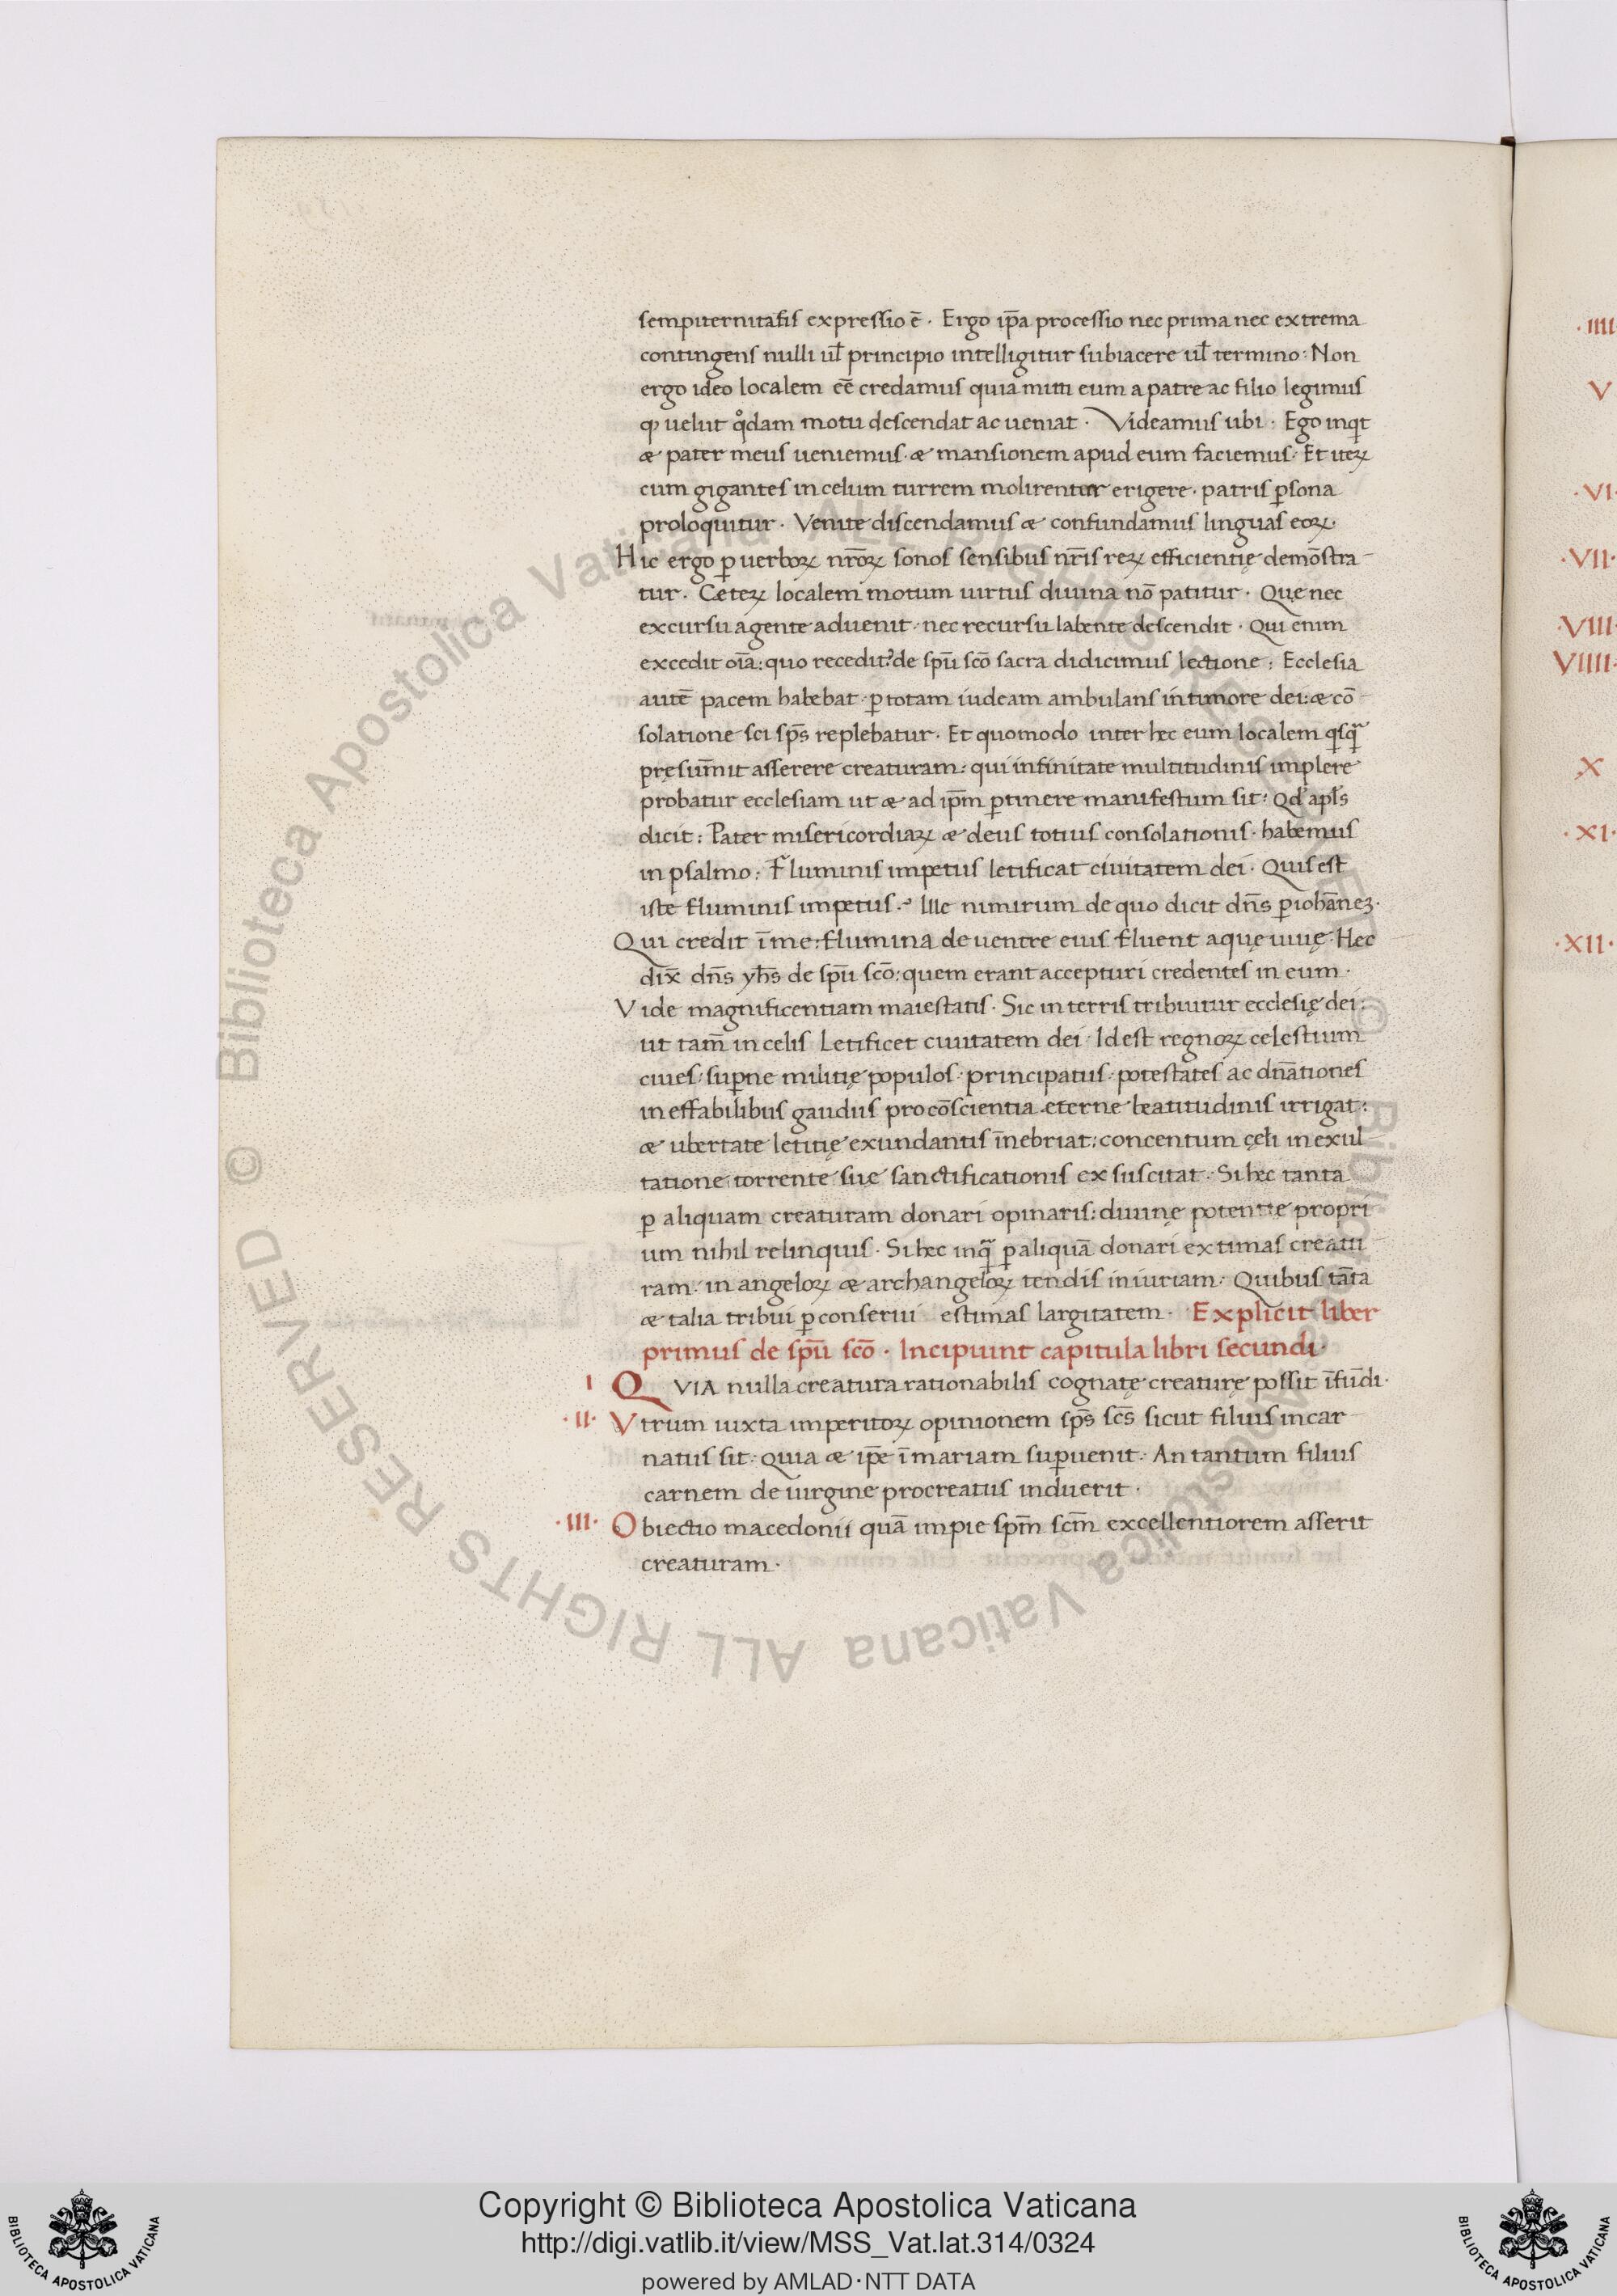 sempiternitatis expressio ē · Ergo ip̄a processio nec prima nec extrema
contingens nulli ul̄ principio intelligitur subiacere ul̄ termino : Non
ergo ideo localem eē credamus quia mitti eum a patre ac filio legimus
ꝙ uelut qͦdam motu descendat ac ueniat · Videamus ubi · Ego inqͥt
æ pater meus ueniemus · æ mansionem apud eum faciemus · Et iteꝝ
cum gigantes in celum turrem molirentur erigere · patris ꝑsona
proloquitur · Venite discendamus æ confundamus linguas eoꝝ ·
Hic ergo ꝑ uerboꝝ nr̄oꝝ sonos sensibus nr̄is reꝝ efficientię demōstra
tur · Ceteꝝ localem motum uirtus diuina nō patitur · Quę nec
excursu agente aduenit · nec recursu labente descendit · Qui enim
excedit oīa : quo recedit? de spū scō sacra didicimus lectione ; Ecclesia
autē pacem habebat · ꝑ totam iudeam ambulans in timore dei : æ cō
solatione sci sp̄s replebatur · Et quomodo inter hec eum localem qͥsqᷓ
pręsum̄it asserere creaturam : qui infinitate multitudinis implere
probatur ecclesiam ut æ ad ip̄m ꝑtinere manifestum sit : Qd̛ apl̄s
dicit : Pater misericordiaꝝ æ deus totius consolationis · habemus
in psalmo : Fluminis impetus letificat ciuitatem dei · Quis est
iste fluminis impetus ? Ille nimirum de quo dicit dn̄s ꝑ ioh̄anneꝫ ·
Qui credit ī me : flumina de uentre eius fluent aquę uiuę · Hec
dix̄ dn̄s yh̄s de spū scō : quem erant accepturi credentes in eum ·
Vide magnificentiam maiestatis · Sic in terris tribuitur ecclesię dei :
ut tam̄ in celis Letificet ciuitatem dei · Id est regnoꝝ celestium
ciues · suꝑne militię populos · principatus · potestates ac dn̄ationes
ineffabilibus gaudiis pro cōscientia eterne beatitudinis irrigat :
æ ubertate letitię exundantis īnebriat : concentum cęli in exul
tatione torrente suę sanctificationis exsuscitat · Si hec tanta
ꝑ aliquam creaturam donari opinaris : diuinę potentię propri
um nihil relinquis · Si hec inqᷓ ꝑ aliquā donari extimas creatu
ram · in angeloꝝ æ archangeloꝝ tendis iniuriam · Quibus tāta
æ talia tribui ꝑ conserui estimas largitatem · Explicit liber
primus de spū scō · Incipiunt capitula libri secundi ·
I QVIA nulla creatura rationabilis cognatę creaturę possit īfūdi ·
· II · Vtrum iuxta imperitoꝝ opinionem sp̄s sc̄s sicut filius incar
natus sit : quia æ ip̄e ī mariam suꝑuenit · An tantum filius
carnem de uirgine procreatus induerit ·
· III · Obiectio macedonii quā impie sp̄m sc̄m excellentiorem asserit
creaturam ·
· IIII
V
· VI ·
· VII ·
· VIII
VIIII ·
X
· XI ·
· XII ·
© Biblioteca Apostolica Vaticana ALL RIGHTS RESERVED
© Biblioteca Apostolica Vaticana ALL RIGHTS RESERVED
Copyright © Biblioteca Apostolica Vaticana
http://digi.vatlib.it/view/MSS_Vat.lat.314/0324
powered by AMLAD·NTT DATA
BIBLIOTECA APOSTOLICA VATICANA
BIBLIOTECA APOSTOLICA VATICANA